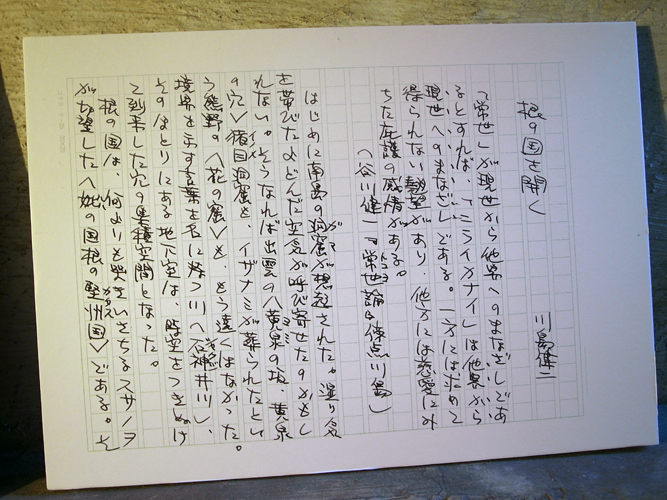 根の国を開く
川島健二
〈常世〉が現世から他界へのまなざしであ
るとすれば、「ニライカナイ」は他界から
現世へのまなざしである。一方には求めて
得られない熱望があり、他方には慈愛にみ
ちた庇護の感情がある。
(谷川健一『常世論』傍点川島)
はじめに南島の洞窟が想起された。湿り気
を帯びたよどんだ空気が呼び寄せたのかもし
れない。そうなれば出雲の〈黄泉の坂、黄泉
の穴〉猪目洞窟も、イザナミが葬られたとい
う熊野の〈花の窟〉も、もう遠くはなかった。
境界を示す言葉を名に持つ川〈石神井川〉、
そのほとりにある地下室は、時空をつきぬけ
て到来した穴の累積空間となった。
根の国は、何よりも哭きいさちるスサノヲ
が希望した〈妣の国根の堅州国〉である。そ